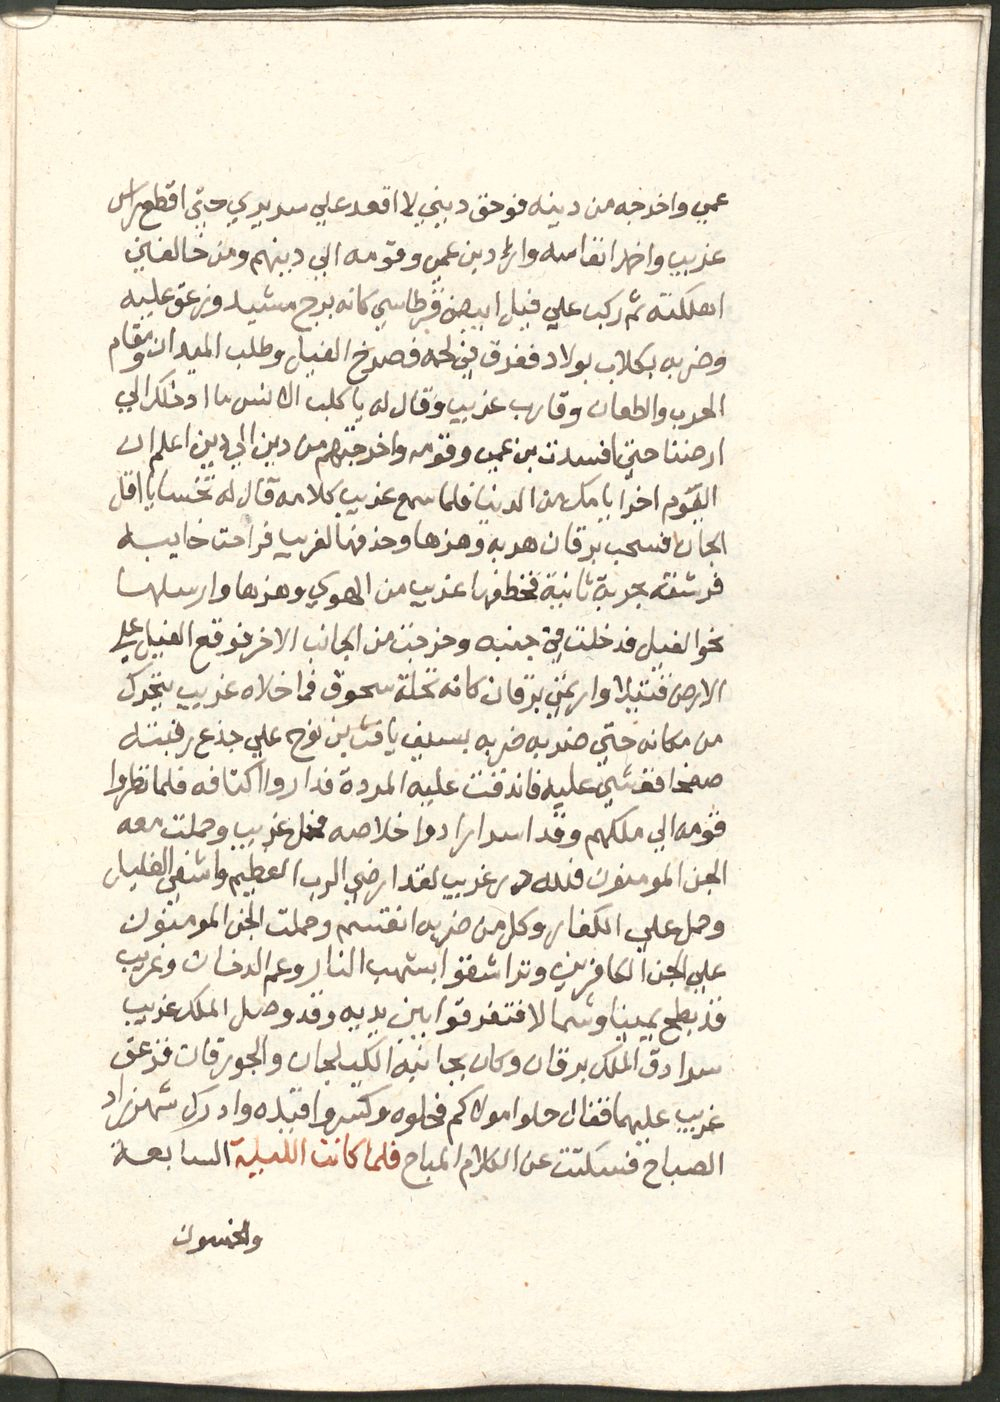 عمي واخرجه من دينه فوحق ديني لا اقعد علي سريري حتي اقطع راس
غريب واخمد انفاسه وارد دين عمي وقومه الي دينهم ومن خالفني
اهلكته ثم ركب علي فيل ابيض قرطاسي كانه برج مشيد وزعق عليه
وضربه بكلاب بولاد فغرق في لحمه فصرخ الفيل وطلب الميدان ومقام
الحرب والطعان وقارب غريب وقال له يا كلب الانس ما ادخلك الي
ارضنا حتي افسدت بن عمي وقومه واخرجتهم من دين الي دين اعلم ان
اليوم اخر ايامك من الدنيا فلما سمع غريب كلامه قال له تخسا يا اقل
الجان فسحب برقان حربة وهزها وحذفها لغريب فراحت خايبه
فرشقه بحربة ثانية فخطفها غريب من الهوي وهزها وارسلها
نحو الفيل فدخلت في جنبه وخرجت من الجانب الاخر فوقع الفيل علي
الارض قتيلا وارتمي برقان كانه نخلة سحوق فما خلاه غريب يتحرك
من مكانه حتي ضربه ضربه بسيف يافث بن نوح علي جذع رقبته
صفحا فغشي عليه فاندفقت عليه المردة فداروا اكتافه فلما نظروا
قومه الي ملكهم وقد اسر ارادوا خلاصه فحمل غريب وحملت معه
الجن المومنون فلله در غريب لقد ارضي الرب العظيم واشفي الغليل
وحمل علي الكفار وكل من ضربه انقسم وحملت الجن المومنون
علي الجن الكافرين وتراشقوا بشهب النار وعم الدخان وغريب
قد بطح يمينا وشمالا فتفرقوا بين يديه وقد وصل الملك غريب
سرادق الملك برقان وكان بجانبه الكيلجان والجورقان فزعق
غريب عليهما فقال حلوا مولاكم فحلوه وكسروا قيده وادرك شهرزاد
الصباح فسكتت عن الكلام المباح فلما كانت الليلة السابعة
والخمسون